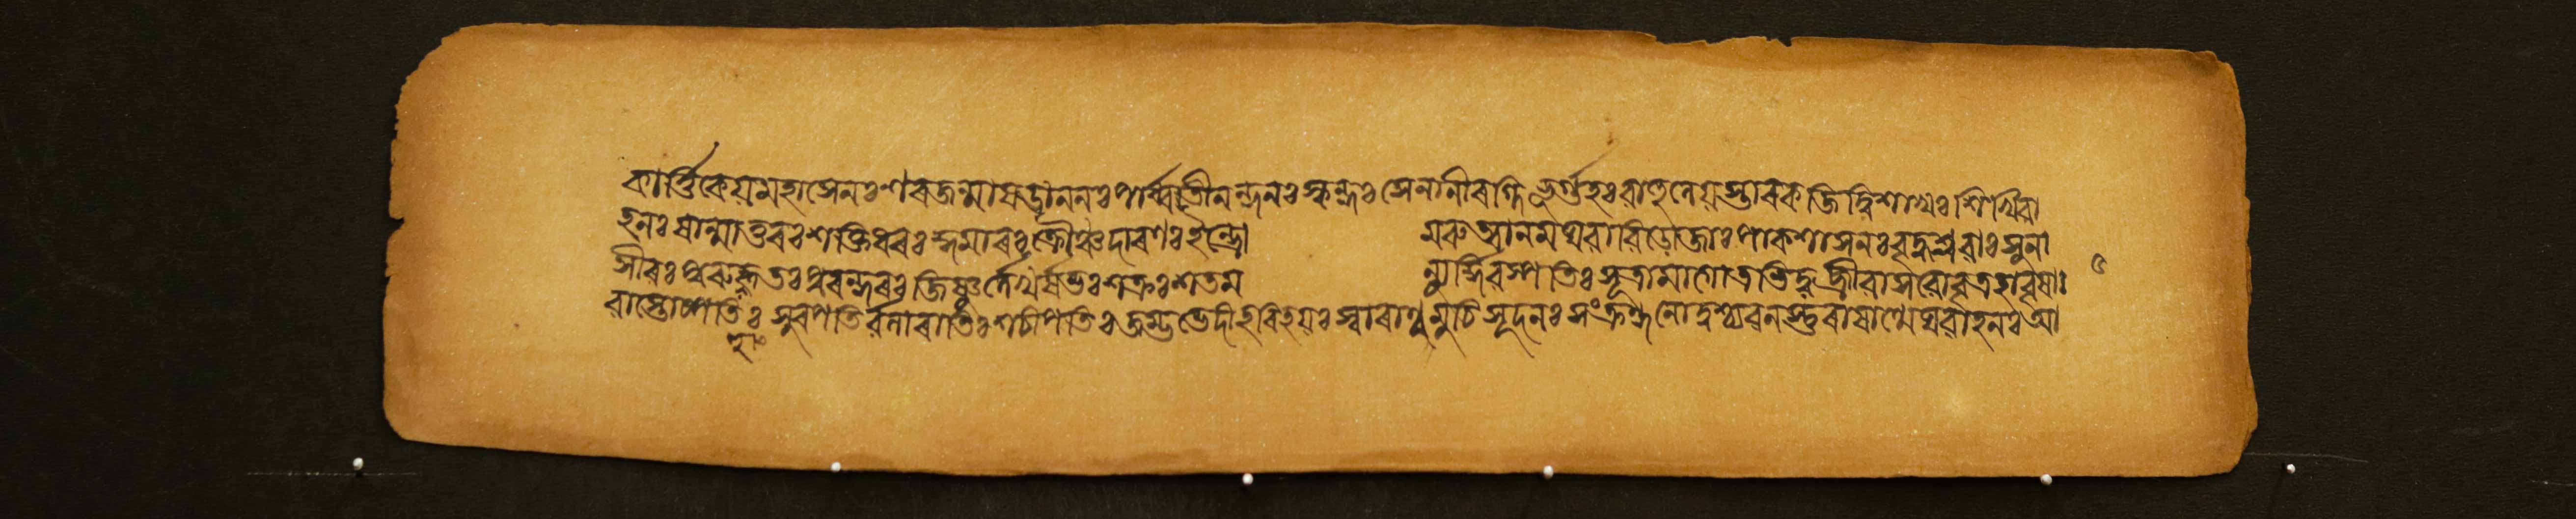 কাৰ্ত্তিকেয়মহাসেনঃশৰজন্মাষড়াননঃপাৰ্ব্বতীনন্দনঃস্কন্দঃসেনানীৰগ্নিভূৰ্গুহঃবাহুলেয়স্তাৰকজিদ্বিশাখঃশিখিবা
হনঃষান্মাতুৰঃশক্তিধৰঃকুমাৰঃক্ৰৌঞ্চদাৰণঃইন্দ্ৰো মৰুত্বানমঘবাবিড়োজাঃপাকশাসনঃবৃদ্ধশ্ৰবাঃসুনা
সীৰঃপুৰুহূতঃপুৰন্দৰঃজিষ্ণুৰ্লেখৰ্ষভঃশক্ৰঃশতম ন্যুৰ্দ্দিবস্পতিঃসূত্ৰামাগোত্ৰভিদ্বজ্ৰীবাসবোবৃত্ৰহাবৃষাঃ
বাস্তোষ্পতিঃ সুৰপতিৰ্বলাৰাতিঃশচীপতিঃজম্ভভেদীহৰিহয়ঃস্বাৰাণ্নমুচিসূদনঃসংক্ৰন্দনোদুশ্চ্যবনস্তুৰাষাণ্মেঘবাহনঃআ
৫